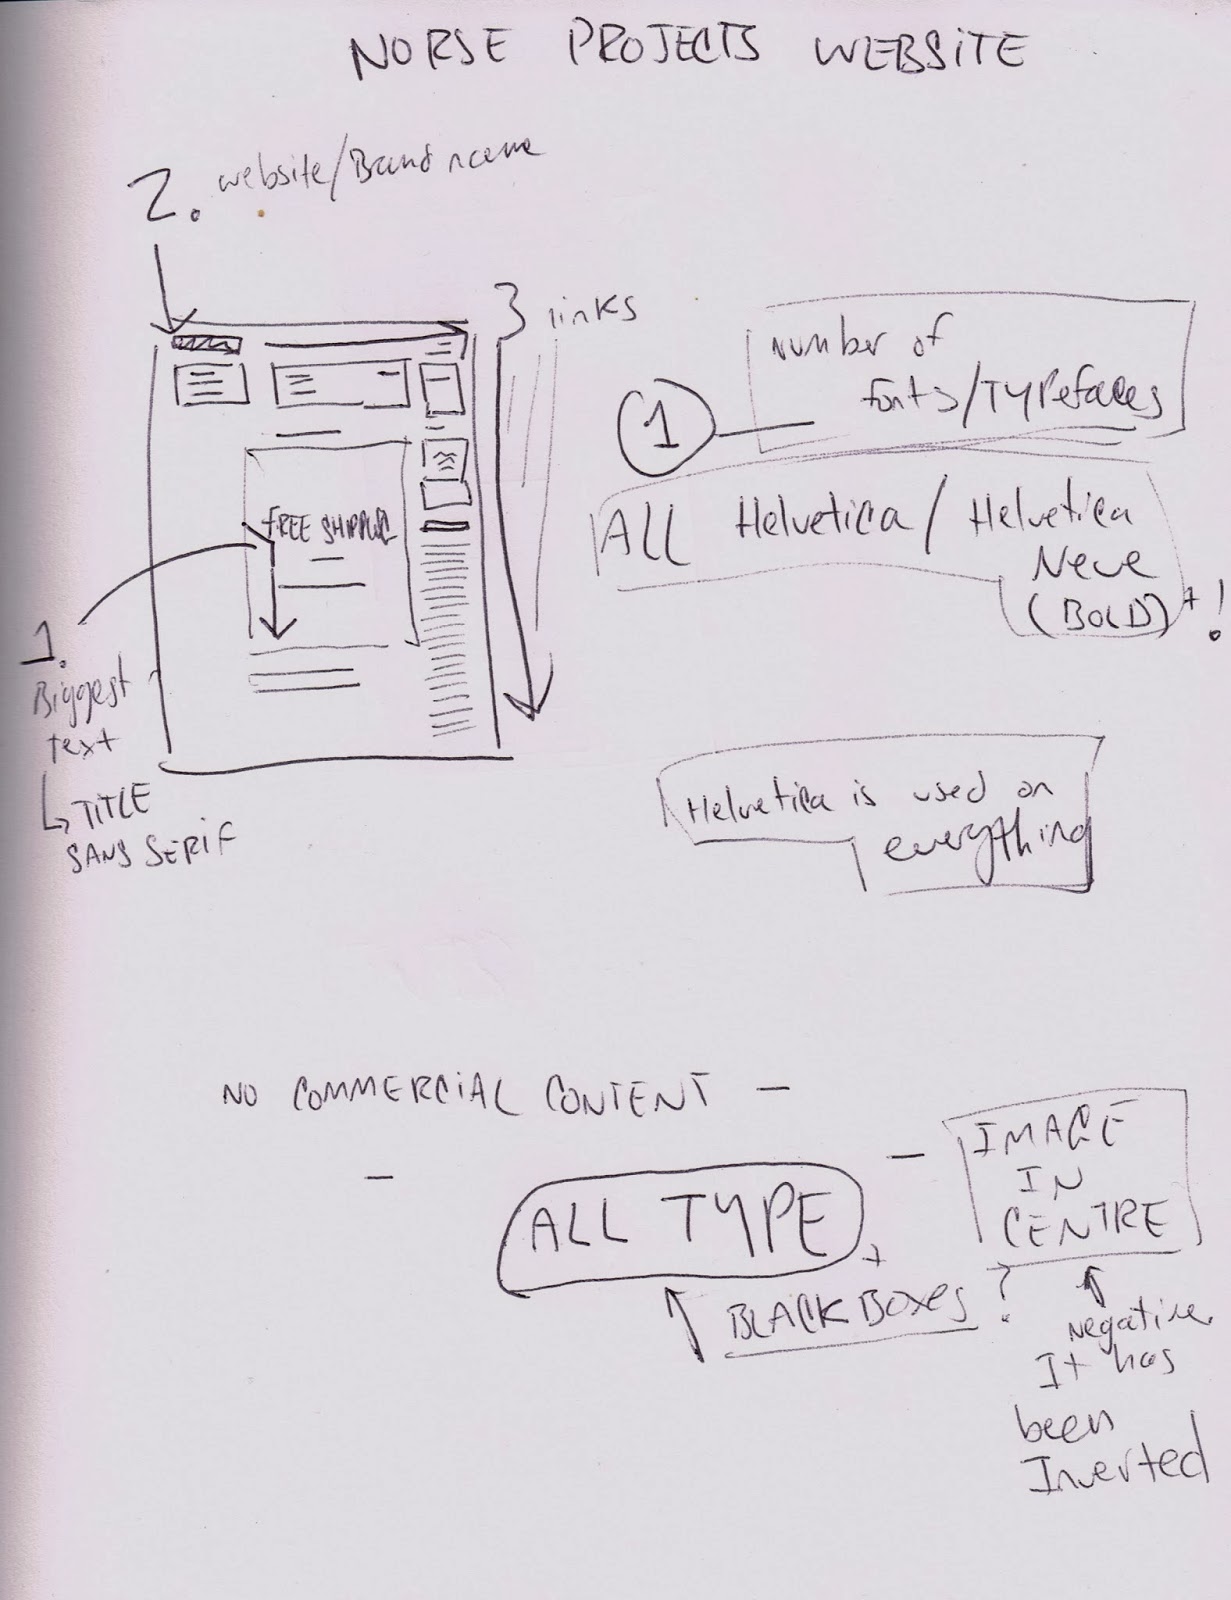 NORSE PROJECTS WEBSITE
2. website/Brand name
3 links
FREE SHIPPING
1.
Biggest
text
TITLE
SANS SERIF
Number of
fonts/TYPefaces
1
ALL Helvetica/Helvetica
Neue
(BOLD)+!
Helvetica is used on
everything
NO COMMERCIAL CONTENT -
-
ALL TYPE
+
BLACK BOXes ?
- IMAGE
IN
CENTRE
Negative.
It has
been
Inverted